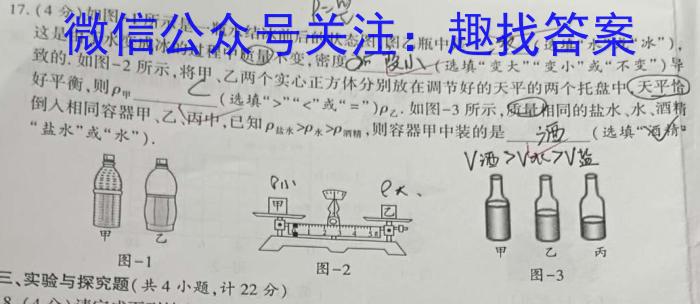 17.(4分)如图-1所示是一瓶水结冰前后的状态图,图乙瓶中
微信公众号关注:趣找答案
这是 水 冰的过程中质量不变,密度 变小 (选填“变大”“变小”或“不变”)导
致的.如图-2所示,将甲、乙两个实心正方体分别放在调节好的天平的两个托盘中,天平恰
好平衡,则ρ甲 (选填“>”“<”或“=”)ρ乙.如图-3所示,质量相同的盐水、水、酒精
倒入相同容器甲、乙、丙中,已知ρ盐水>ρ水>ρ酒精,则容器甲中装的是 酒 (选填“酒精”
“盐水”或“水”).
V酒>V水>V盐
ρ小 ρ大
甲 乙
甲 乙 甲 乙 丙
图-1 图-2 图-3
三、实验与探究题(共4小题,计22分)